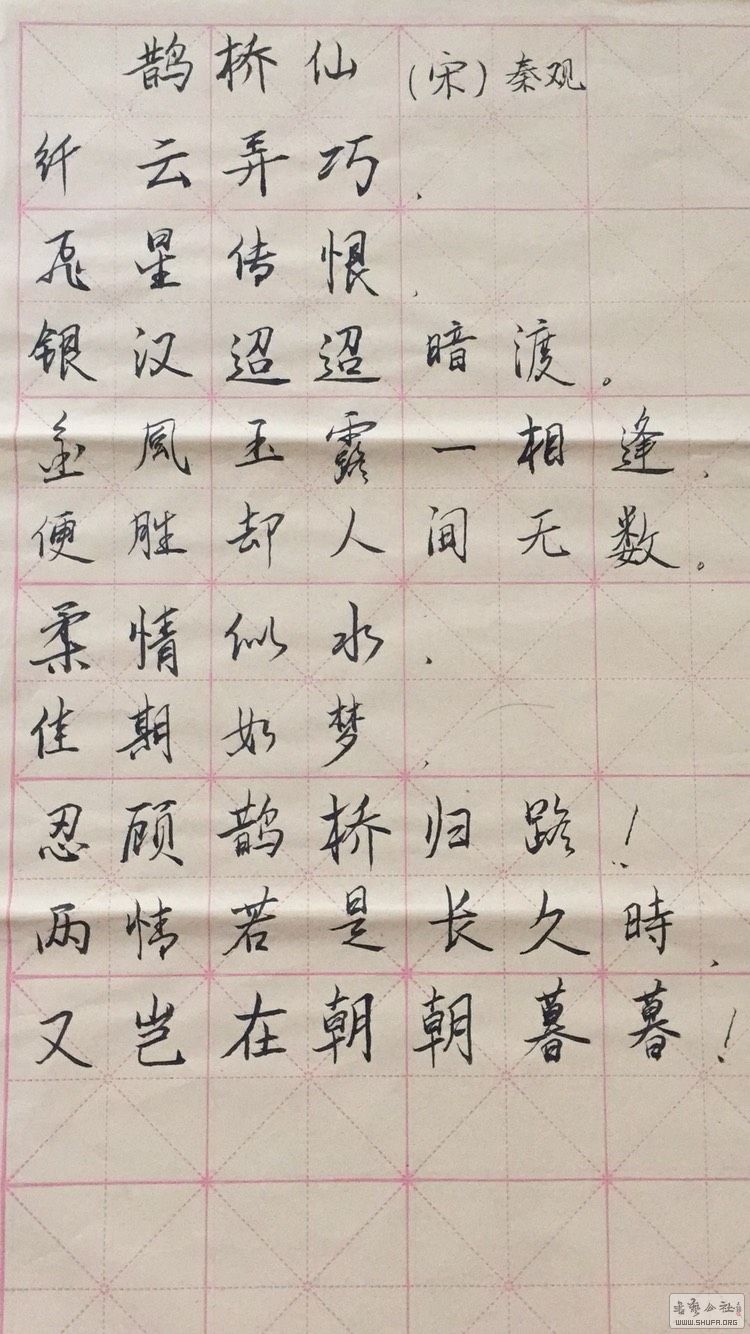 鹊桥仙 (宋) 秦观
纤云弄巧,
飞星传恨,
银汉迢迢暗渡。
金風玉露一相逢,
便胜却人间无数。
柔情似水,
佳期如梦,
忍顾鹊桥归路!
两情若是长久時,
又岂在朝朝暮暮!
书艺公社
WWW.SHUFA.ORG